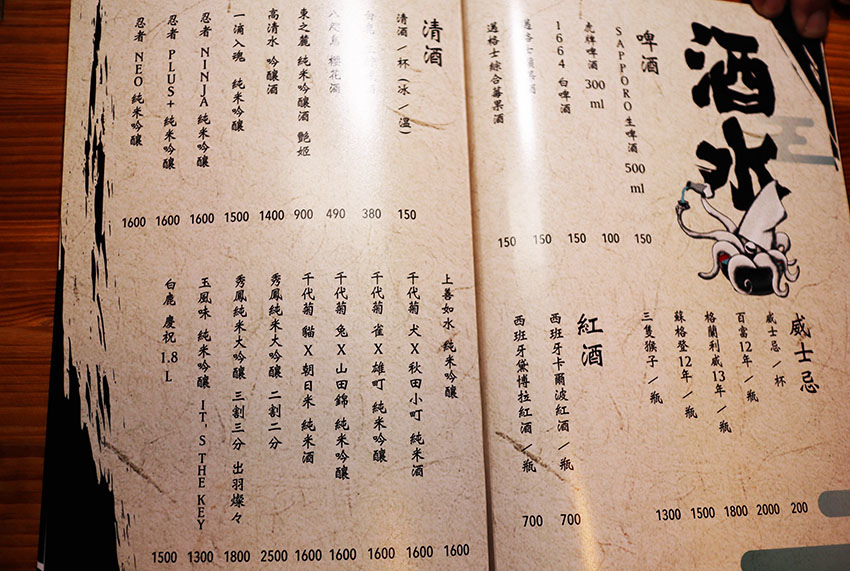 酒水
啤酒
SAPPORO生啤酒 500 ml 150
虎牌啤酒 300 ml 100
1664 白啤酒 150
邁格士 150
邁格士綜合莓果酒 150
威士忌
威士忌/杯 200
百富12年/瓶 2000
格蘭利威13年/瓶 1800
蘇格登12年/瓶 1500
三隻猴子/瓶 1300
紅酒
西班牙卡爾波紅酒/瓶 700
西班牙黛博拉紅酒/瓶 700
清酒
清酒/杯(冰/溫) 150
白鹿 380
八咫烏 櫻花酒 490
東之麓 純米吟釀酒 艷姬 900
高清水 吟釀酒 1400
一滴入魂 純米吟釀 1500
忍者 NINJA 純米吟釀 1600
忍者 PLUS+ 純米吟釀 1600
忍者 NEO 純米吟釀 1600
上善如水 純米吟釀 1600
千代菊 犬X秋田小町 純米酒 1600
千代菊 雀X雄町 純米吟釀 1600
千代菊 兔X山田錦 純米吟釀 1600
千代菊 貓X朝日米 純米酒 1600
秀鳳純米大吟釀 二割二分 2500
秀鳳純米大吟釀 三割三分 出羽燦々 1800
玉風味 純米吟釀 IT'S THE KEY 1300
白鹿 慶祝 1.8 L 1500